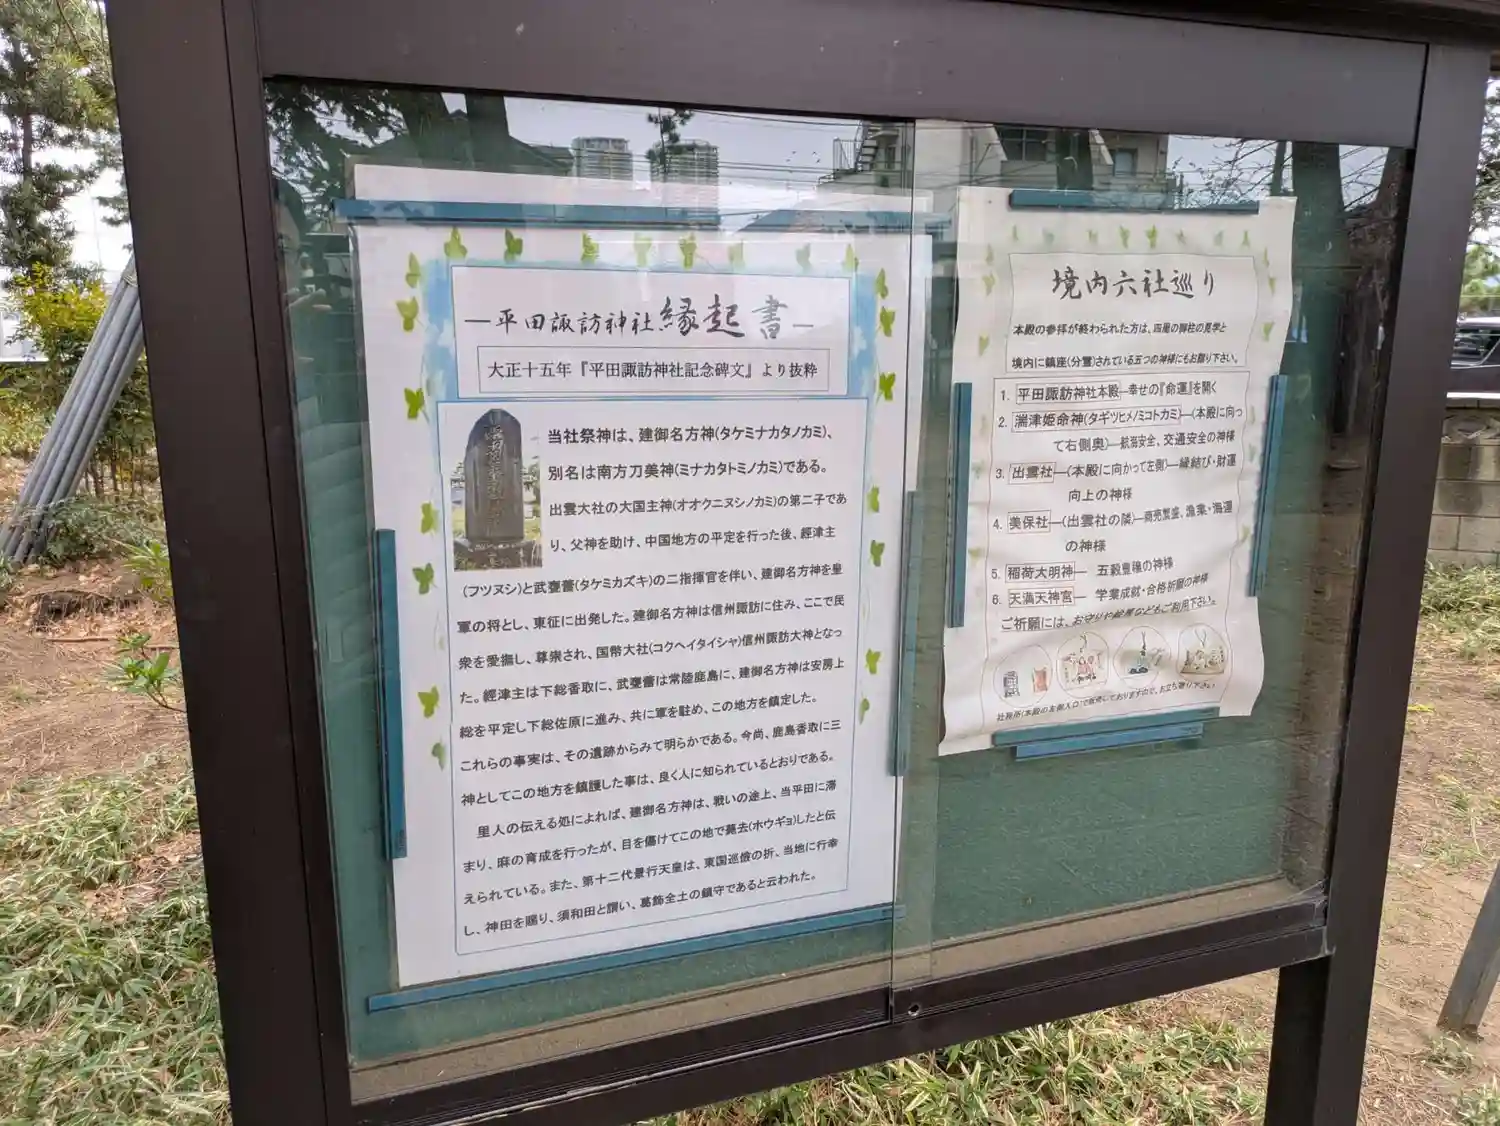 ―平田諏訪神社縁起書―
大正十五年『平田諏訪神社記念碑文』より抜粋
当社祭神は、建御名方神(タケミナカタノカミ)、
別名は南方刀美神(ミナカタトミノカミ)である。
出雲大社の大国主神(オオクニヌシノカミ)の第二子であ
り、父神を助け、中国地方の平定を行った後、經津主
(フツヌシ)と武甕蕾(タケミカズキ)の二指揮官を伴い、建御名方神を皇
軍の将とし、東征に出発した。建御名方神は信州諏訪に住み、ここで民
衆を愛撫し、尊崇され、国幣大社(コクヘイタイシャ)信州諏訪大神となっ
た。經津主は下総香取に、武甕蕾は常陸鹿島に、建御名方神は安房上
総を平定し下総佐原に進み、共に軍を駐め、この地方を鎮定した。
これらの事実は、その遺跡からみて明らかである。今尚、鹿島香取に三
神としてこの地方を鎮護した事は、良く人に知られているとおりである。
里人の伝える処によれば、建御名方神は、戦いの途上、当平田に滞
まり、麻の育成を行ったが、目を傷けてこの地で薨去(ホウギョ)したと伝
えられている。また、第十二代景行天皇は、東国巡儉の折、当地に行幸
し、神田を賜り、須和田と謂い、葛飾全土の鎮守であると云われた。
境内六社巡り
本殿の参拝が終わられた方は、四屋の御柱の見学と
境内に鎮座(分霊)されている五つの神様にもお賜り下さい。
1. 平田諏訪神社本殿―幸せの『命運』を開く
2. 湍津姫命神(タギツヒメノミコトカミ)―(本殿に向っ
て右側奥)―航海安全、交通安全の神様
3. 出雲社―(本殿に向かって左側)―縁結び・財運
向上の神様
4. 美保社―(出雲社の隣)―商売繁盛、漁業・海運
の神様
5. 稲荷大明神― 五穀豊穣の神様
6. 天満天神宮― 学業成就・合格祈願の神様
ご祈願には、お守りや絵馬などもご利用下さい。
社務所(本殿の左側入口)で販売しておりますので、お立ち寄り下さい。